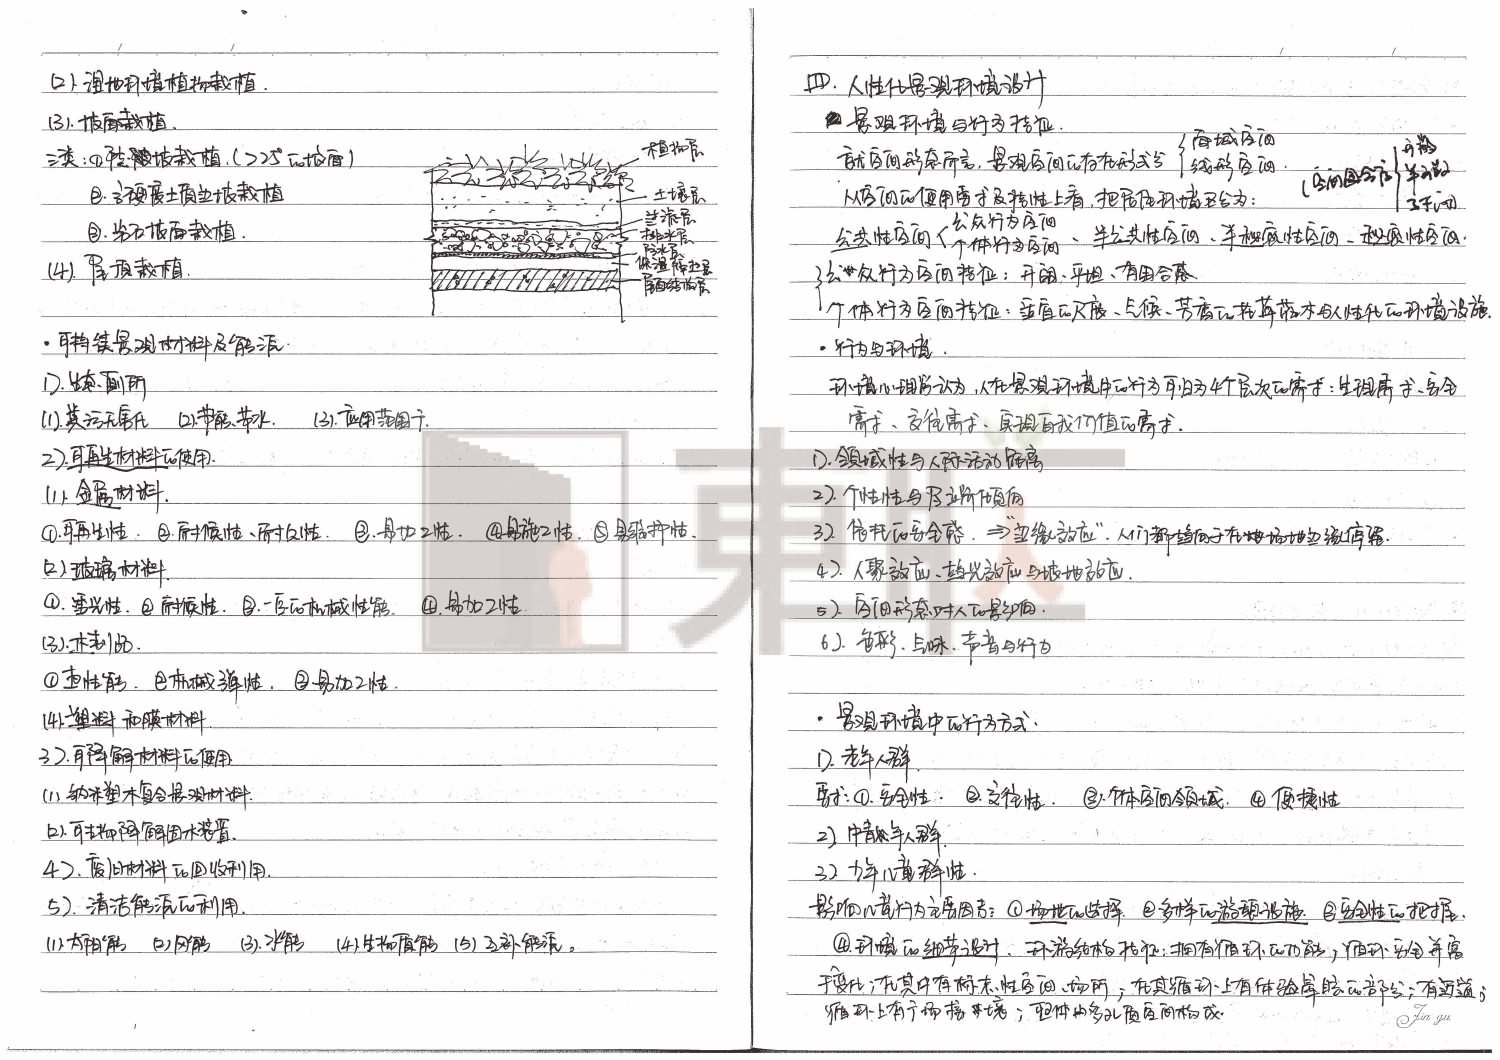 (2). 湿地环境植物栽植.
(3). 坡面栽植.
三类: ①陡坡栽植.(>25°的坡面)
②.坚硬质土质边坡栽植
③.岩石坡面栽植.
(4). 屋顶栽植.
植物层
土壤层
过滤层
排水层
防水层
保温隔热层
屋面结构层
·可持续景观材料及能源.
1).生态厕所
(1).粪污无害化 (2).节能、节水. (3).应用范围广.
2).可再生材料的使用.
(1).金属材料.
①.可再生性. ②.耐候性、耐久性. ③.易加工性. ④.易施工性. ⑤易维护性.
(2).玻璃材料.
①.透光性. ②耐候性. ③.一定的机械性能. ④.易加工性.
(3).木制品.
①.查性能. ②机械弹性. ③易加工性.
(4).塑料和膜材料.
3).可降解材料的使用
(1).纳米塑木复合景观材料.
(2).可生物降解固水装置.
4).废旧材料的回收利用.
5).清洁能源的利用.
(1).太阳能 (2).风能 (3).水能 (4).生物质能 (5).互补能源。
四.人性化景观环境设计
·景观环境与行为特征.
就空间形态而言,景观空间的存在形式分 面域空间 线形空间.
(空间围合度 开敞 半开敞 封闭
从空间的使用需求及特性上看,把居住环境空分为:
公共性空间 公众行为空间 个体行为空间、半公共性空间、半私密性空间、私密性空间.
公众行为空间特征:开阔、平坦、有围合感
个体行为空间特征:适宜的尺度、气候、芳香的花草苗木与人性化的环境设施.
·行为与环境.
环境心理学认为,人在景观环境中的行为可归为4个层次的需求:生理需求、安全
需求、交往需求、实现自我价值的需求.
1).领域性与人际活动距离
2).个性性与
3).依托的安全感. ⇒"边缘效应".人们都趋向于在场地边缘停留.
4).人聚效应、趋光效应与坡地效应.
5).空间形态对人的影响.
6).色彩.气味.声音与行为
·景观环境中的行为方式.
1).老年人群.
要求:①.安全性. ②.交往性. ③.个体空间领域. ④便捷性
2).中青年人群.
3).少年儿童群性.
影响儿童行为主要因素:①场地的选择. ②多样的游戏设施. ③安全性的把握.
④环境的细节设计. 环游结构特征:拥有循环的功能;循环安全并富
于变化;在其中有标志性空间、场所;在其循环上有体验晕眩的部分;有近道;
循环上有广场环境;整体由多孔质空间构成.
Jin gu
東联